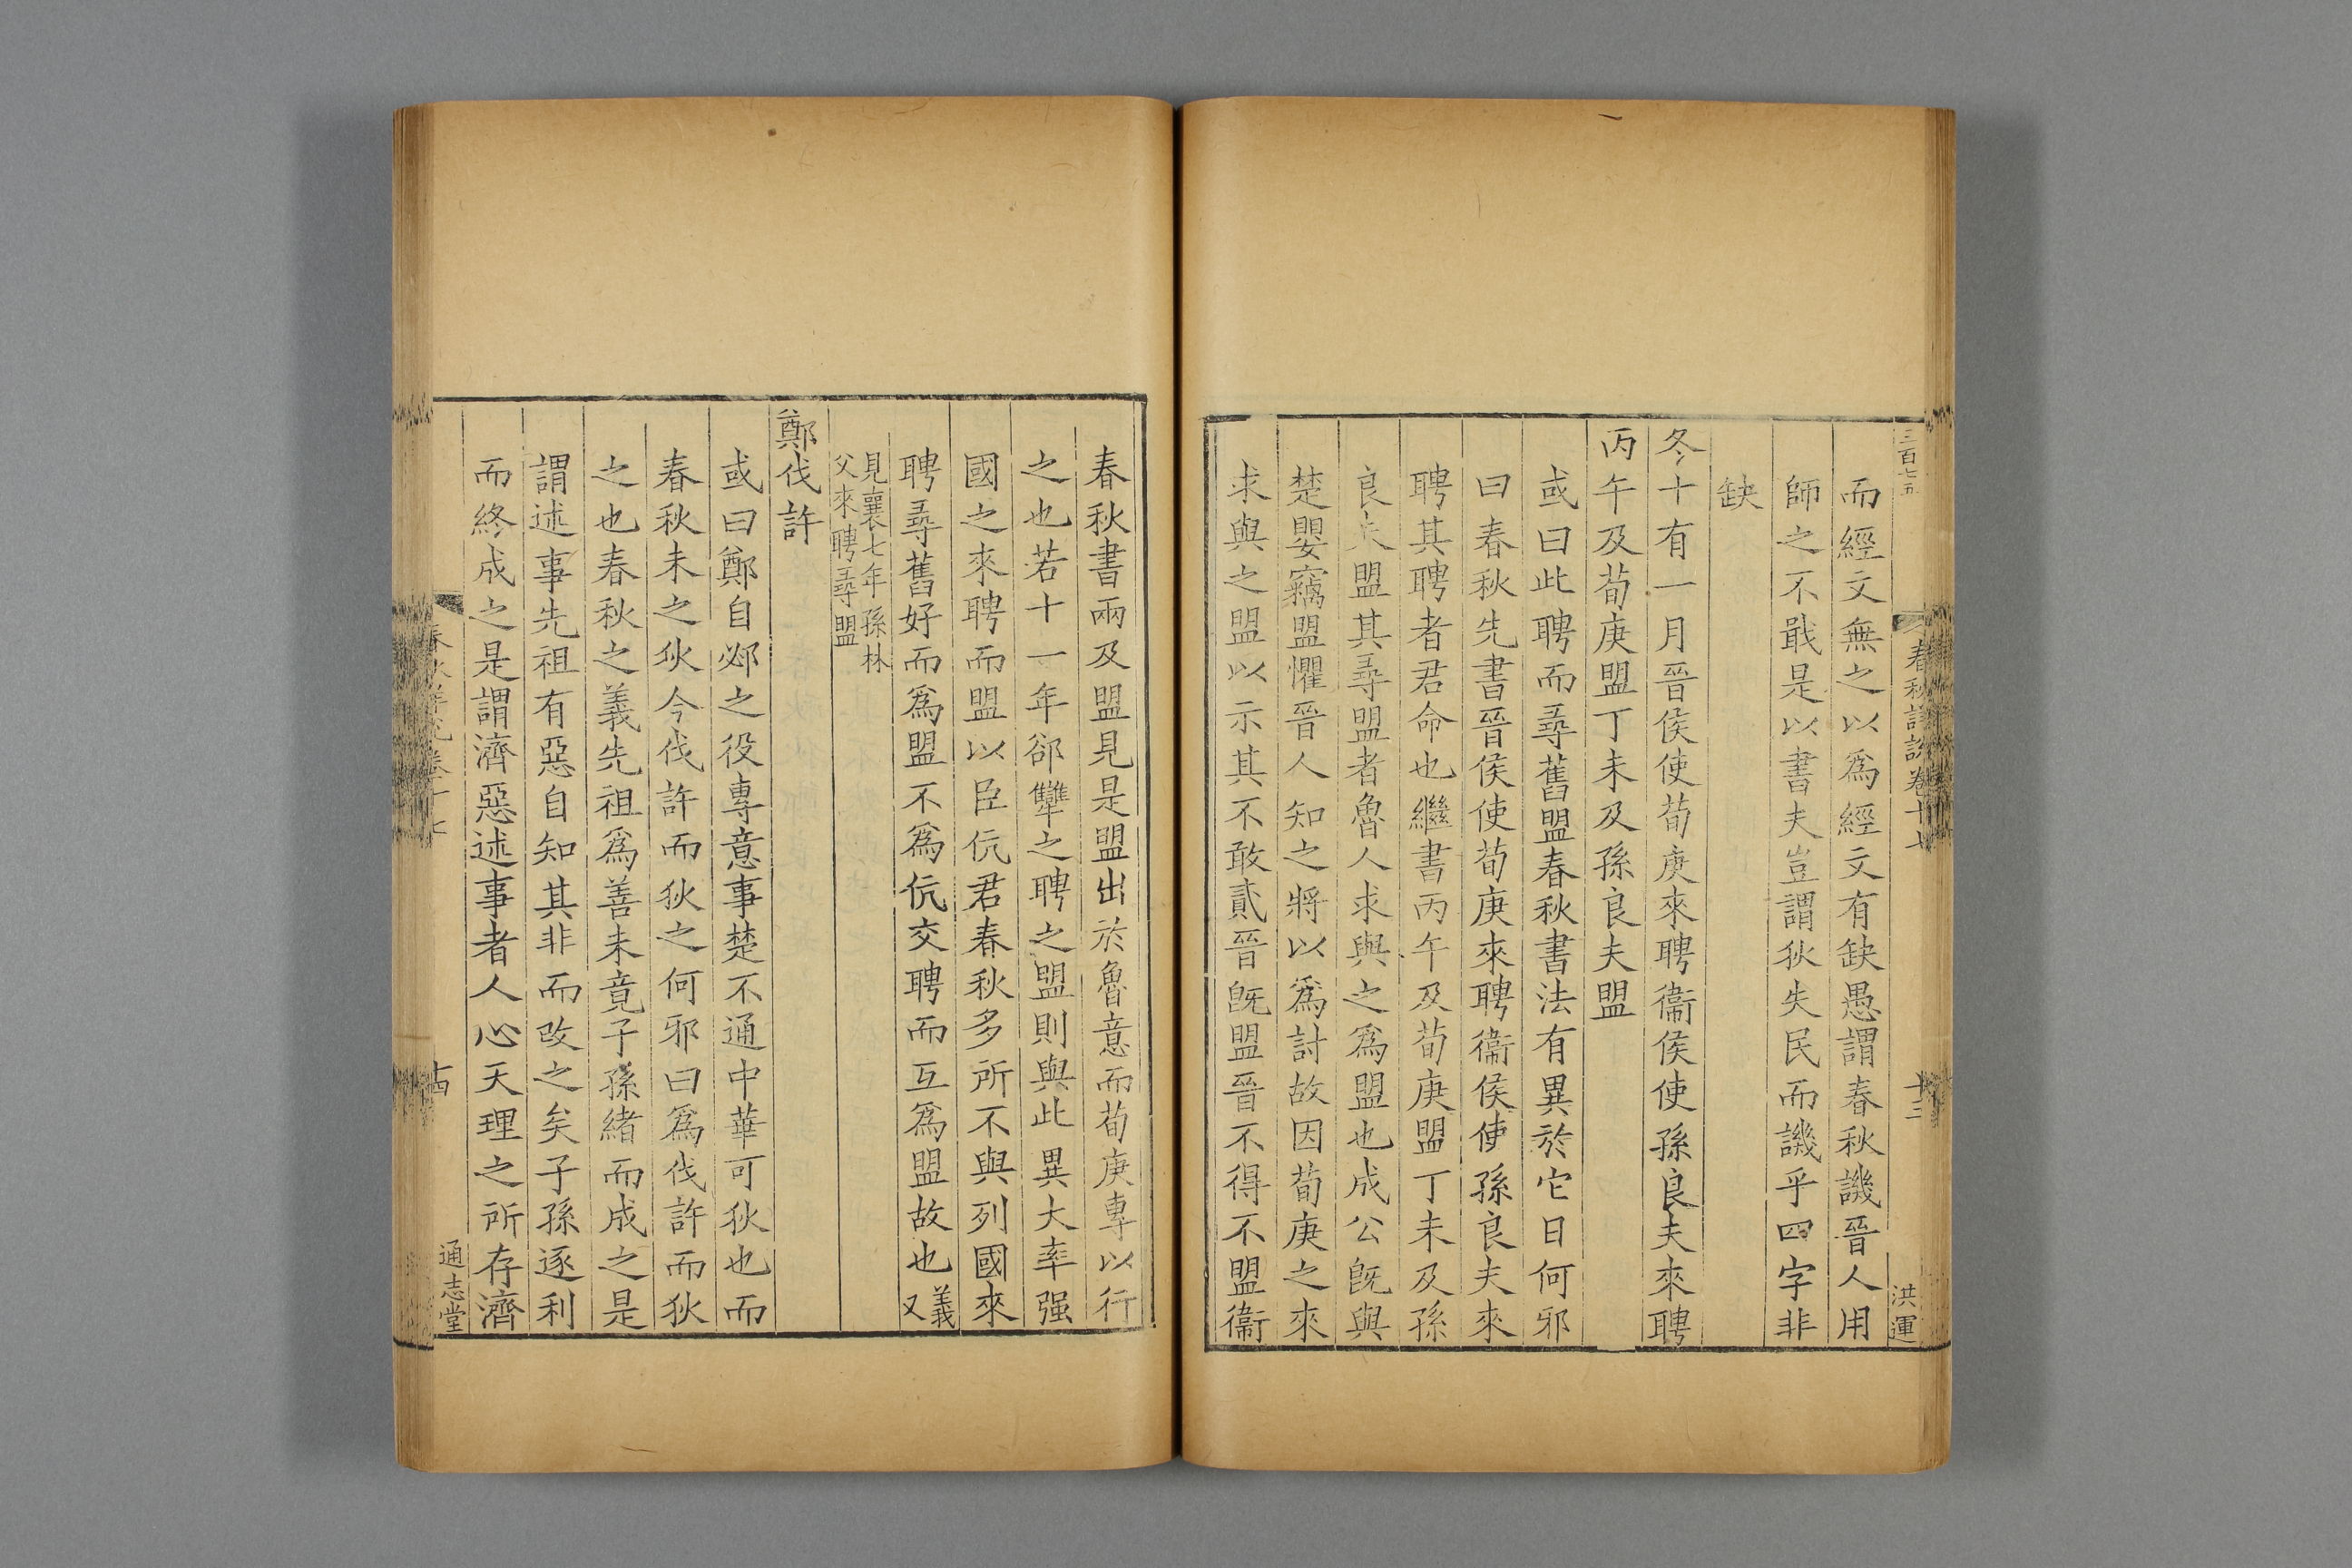 三百七五
春秋詳說卷十七
十三
洪運
而經文無之以爲經文有缺愚謂春秋譏晉人用
師之不戢是以書夫豈謂狄失民而譏乎四字非
缺
冬十有一月晉侯使荀庚來聘衞侯使孫良夫來聘
丙午及荀庚盟丁未及孫良夫盟
或曰此聘而尋舊盟春秋書法有異於它日何邪
曰春秋先書晉侯使荀庚來聘衞侯使孫良夫來
聘其聘者君命也繼書丙午及荀庚盟丁未及孫
良夫盟其尋盟者魯人求與之爲盟也成公旣與
楚嬰竊盟懼晉人知之將以爲討故因荀庚之來
求與之盟以示其不敢貳晉旣盟晉不得不盟衞
春秋書兩及盟見是盟出於魯意而荀庚專以行
之也若十一年郤犫之聘之盟則與此異大率强
國之來聘而盟以臣伉君春秋多所不與列國來
聘尋舊好而爲盟不爲伉交聘而互爲盟故也義又
見襄七年孫林
父來聘尋盟
鄭伐許
或曰鄭自邲之役專意事楚不通中華可狄也而
春秋未之狄今伐許而狄之何邪曰爲伐許而狄
之也春秋之義先祖爲善未竟子孫緒而成之是
謂述事先祖有惡自知其非而改之矣子孫逐利
而終成之是謂濟惡述事者人心天理之所存濟
春秋詳說卷十七
十四
通志堂